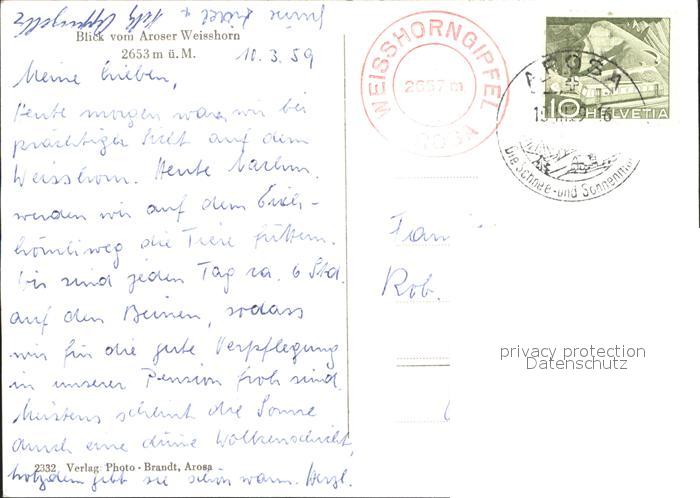 Blick vom Aroser Weisshorn
2653 m ü. M.
10.3.59
Meine Lieben,
Heute morgen waren wir bei
prächtiger Sicht auf dem
Weisshorn. Heute nachm.
werden wir auf dem Eich-
hörnliweg die Tiere füttern.
Wir sind jeden Tag ca. 6 Std.
auf den Beinen, sodass
wir für die gute Verpflegung
in unserer Pension froh sind.
Meistens scheint die Sonne
durch eine dünne Wolkenschicht,
trotzdem gibt sie schön warm. Herzl.
2332 Verlag: Photo-Brandt, Arosa
WEISSHORNGIPFEL
2657 m
AROSA
AROSA
Die Schnee- und Sonnen
10 HELVETIA
Fam
Rob.
privacy protection
Datenschutz